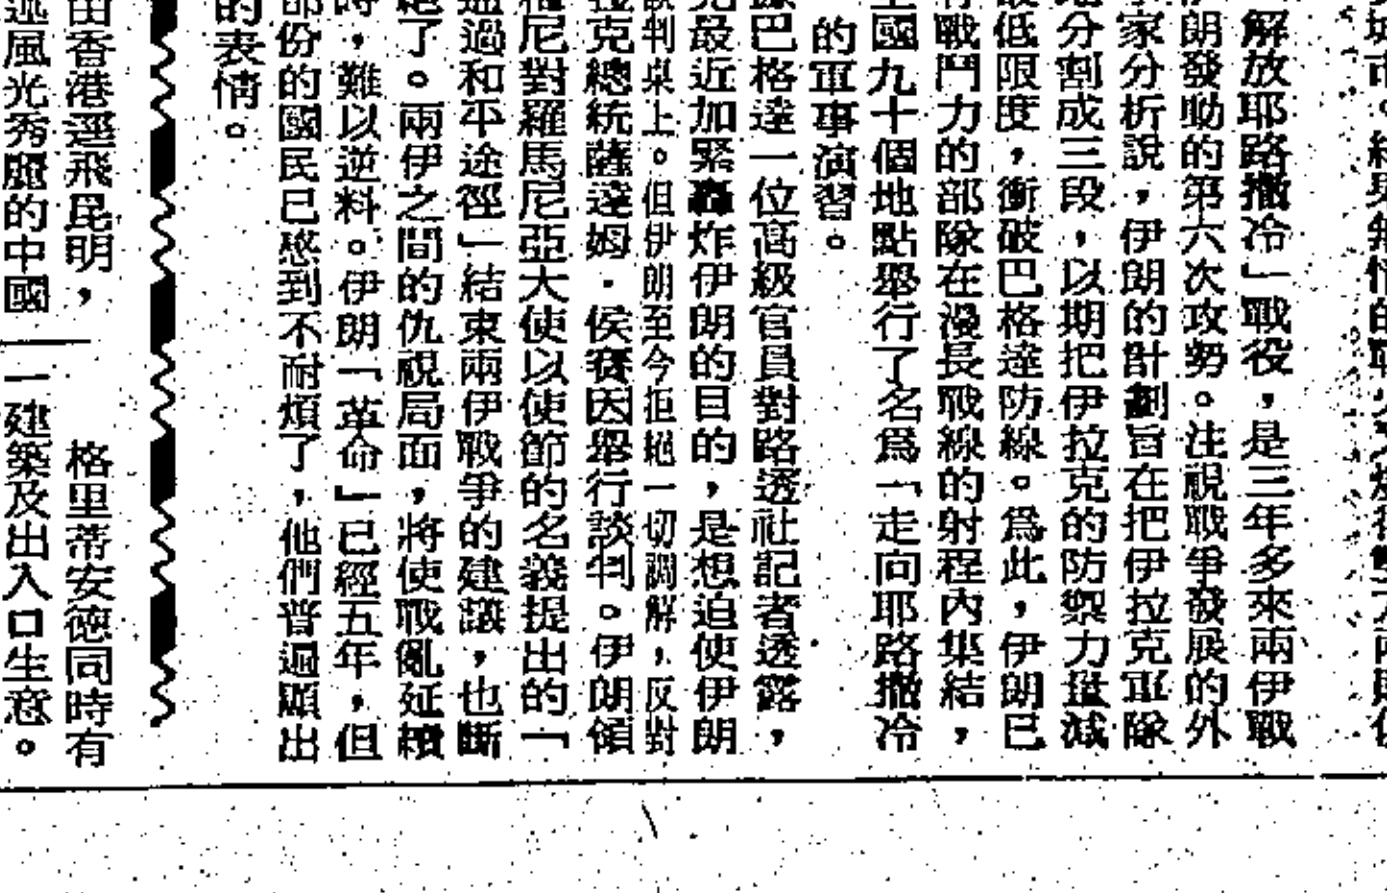 解放耶路撒冷」戰役，是三年多來兩伊戰
朗發動的第六次攻勢。注視戰爭發展的外
家分析說，伊朗的計劃旨在把伊拉克軍隊
分割成三段，以期把伊拉克的防禦力量減
低限度，衝破巴格達防線。爲此，伊朗已
戰鬥力的部隊在漫長戰線的射程內集結，
國九十個地點舉行了名爲「走向耶路撒冷
的軍事演習。
巴格達一位高級官員對路透社記者透露，
最近加緊轟炸伊朗的目的，是想迫使伊朗
判桌上。但伊朗至今拒絕一切調解，反對
克總統薩達姆．侯賽因舉行談判。伊朗領
尼對羅馬尼亞大使以使節的名義提出的「
過和平途徑」結束兩伊戰爭的建議，也斷
了。兩伊之間的仇視局面，將使戰亂延續
時，難以逆料。伊朗「革命」已經五年，但
部份的國民已感到不耐煩了，他們普遍顯出
的表情。
由香港逕飛昆明，
風光秀麗的中國
格里蒂安德同時有
一建築及出入口生意。